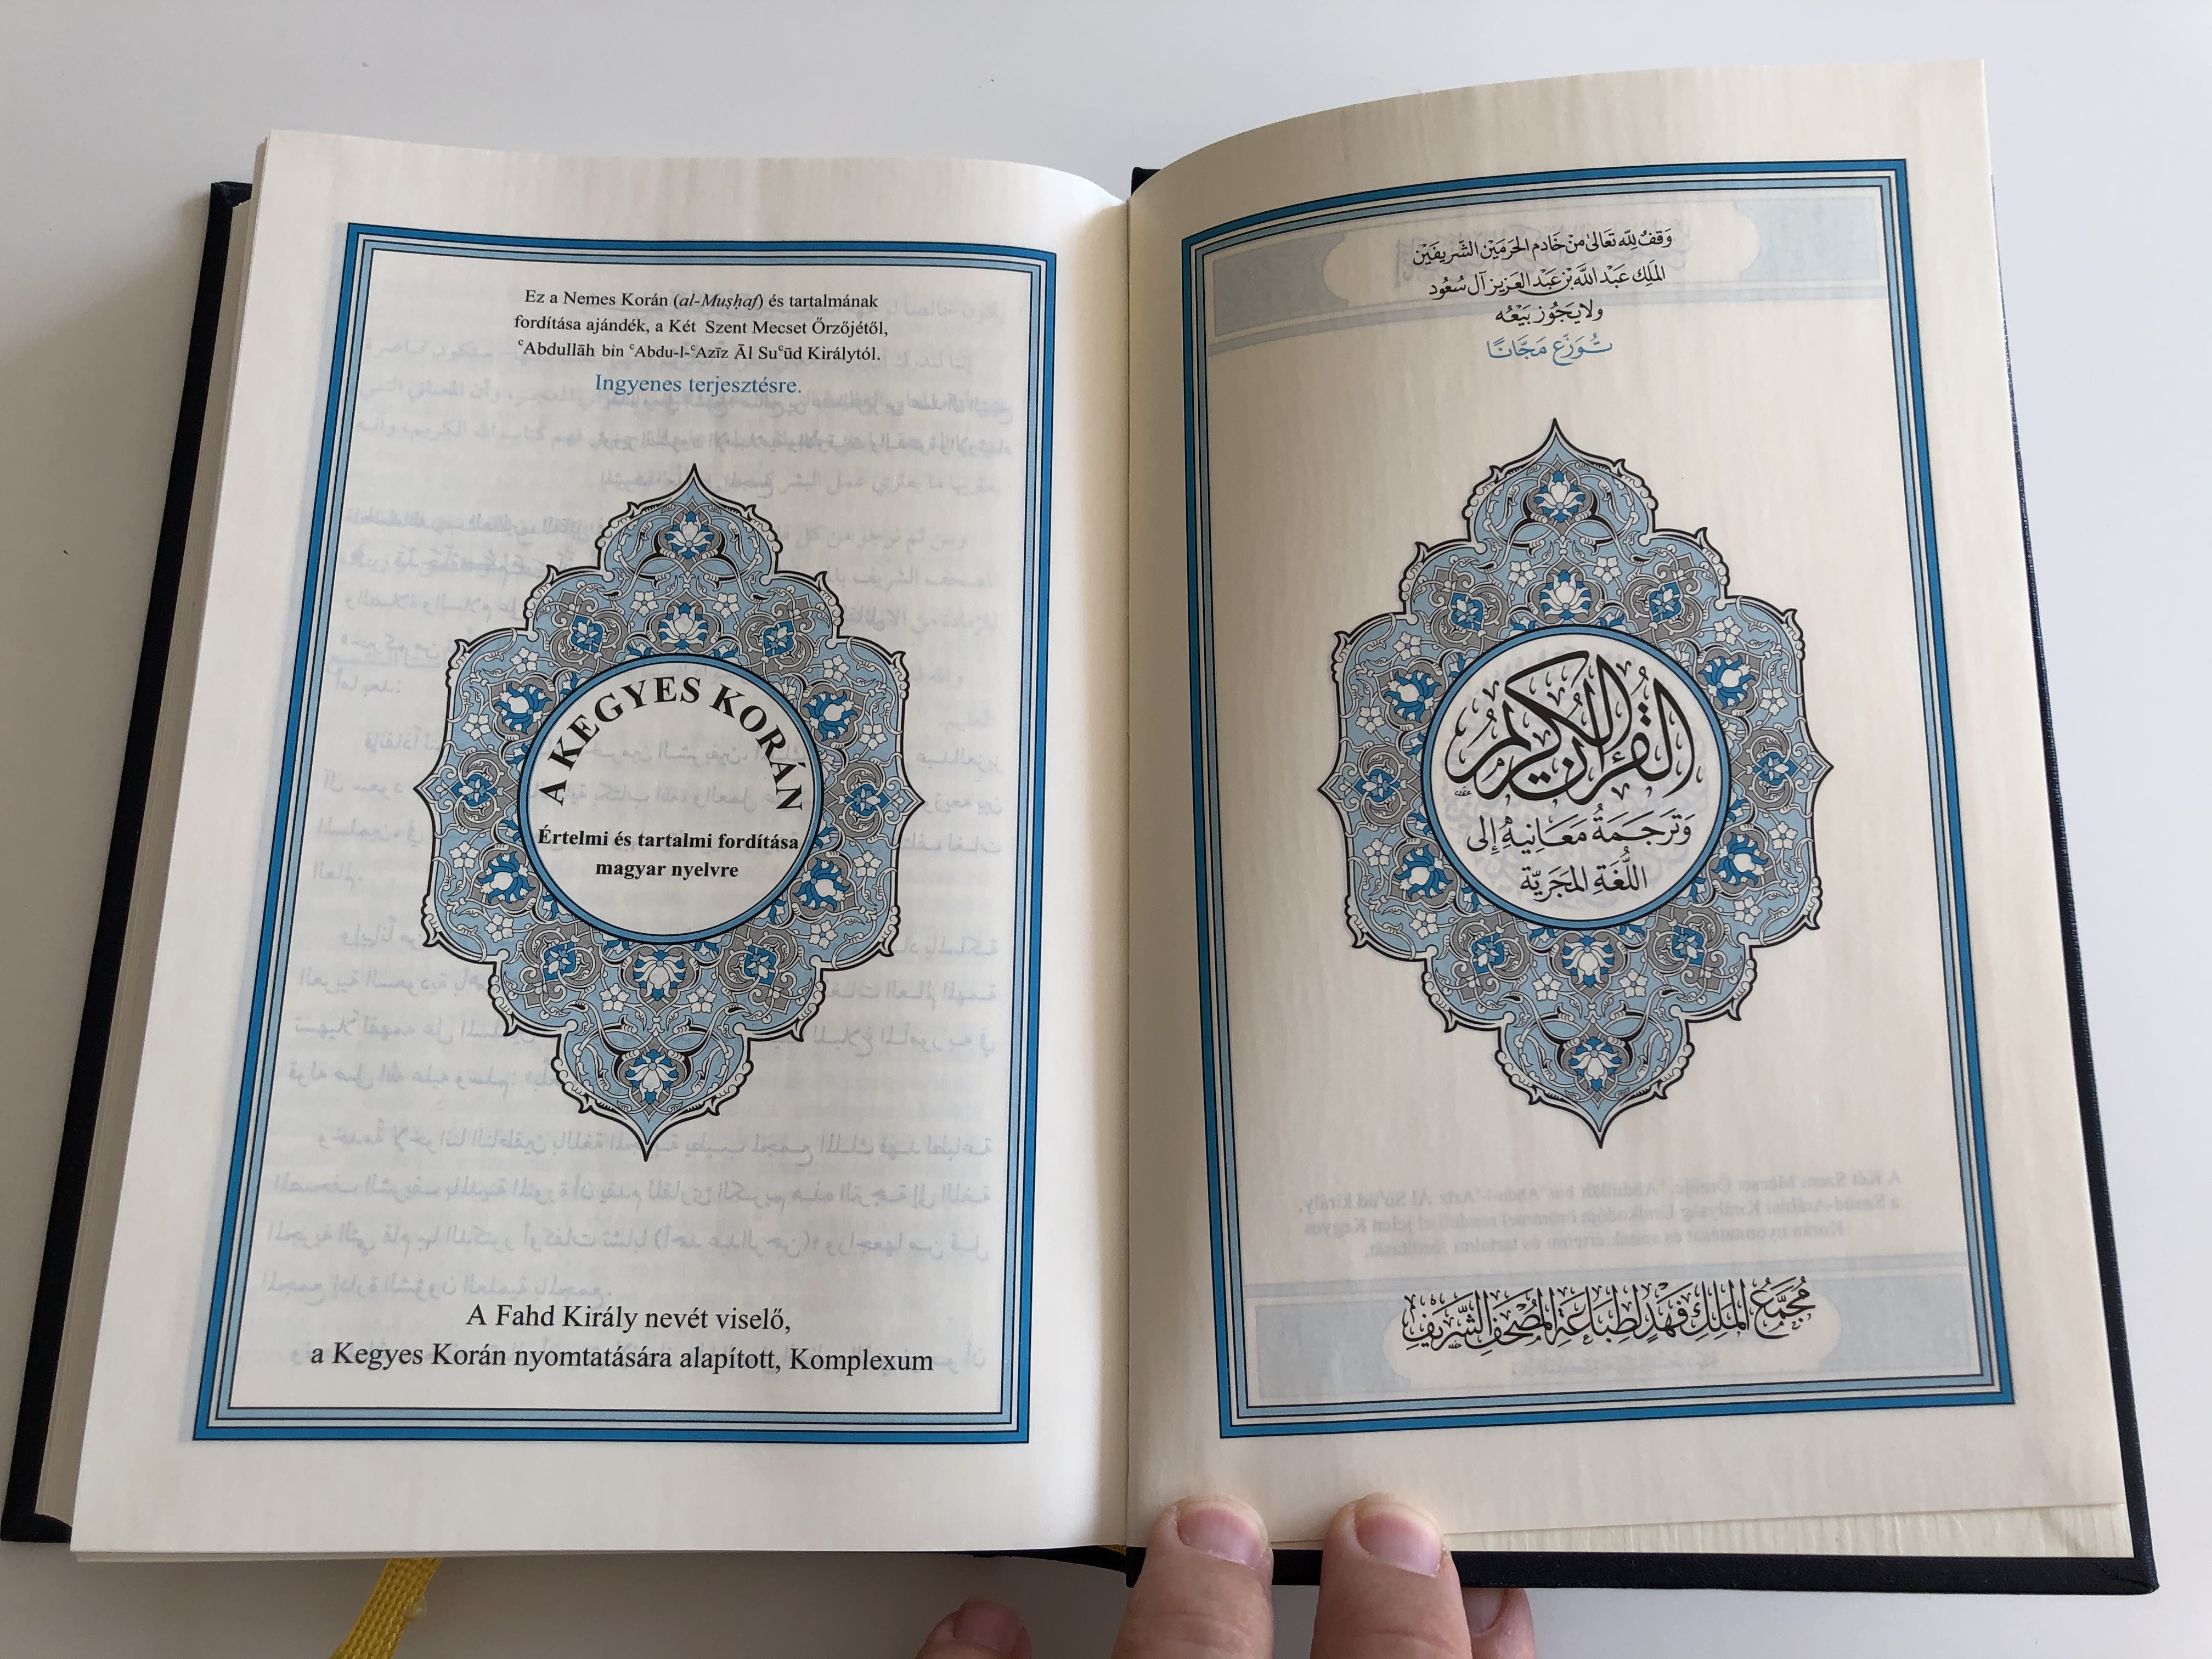 Ez a Nemes Korán (al-Muṣḥaf) és tartalmának
fordítása ajándék, a Két Szent Mecset Őrzőjétől,
ᶜAbdullāh bin ᶜAbdu-l-ᶜAzīz Āl Suᶜūd Királytól.
Ingyenes terjesztésre.
A KEGYES KORÁN
Értelmi és tartalmi fordítása
magyar nyelvre
A Fahd Király nevét viselő,
a Kegyes Korán nyomtatására alapított, Komplexum
وَقفٌ لِلّٰه تَعَالىٰ مِنْ خَادِم الحَرَمَيْن الشَّرِيفَيْن
المَلِك عَبْد اللَّه بْن عَبْد العَزِيز آل سُعُود
وَلا يَجُوز بَيْعُه
تُوَزَّع مَجَّانًا
القُرْآن الكَرِيم
وَتَرجَمَةُ مَعَانِيهِ إِلى
اللُّغَةِ المَجَرِيَّة
مُجَمَّعُ المَلِكِ فَهْدٍ لِطِبَاعَةِ المُصْحَفِ الشَّرِيفِ